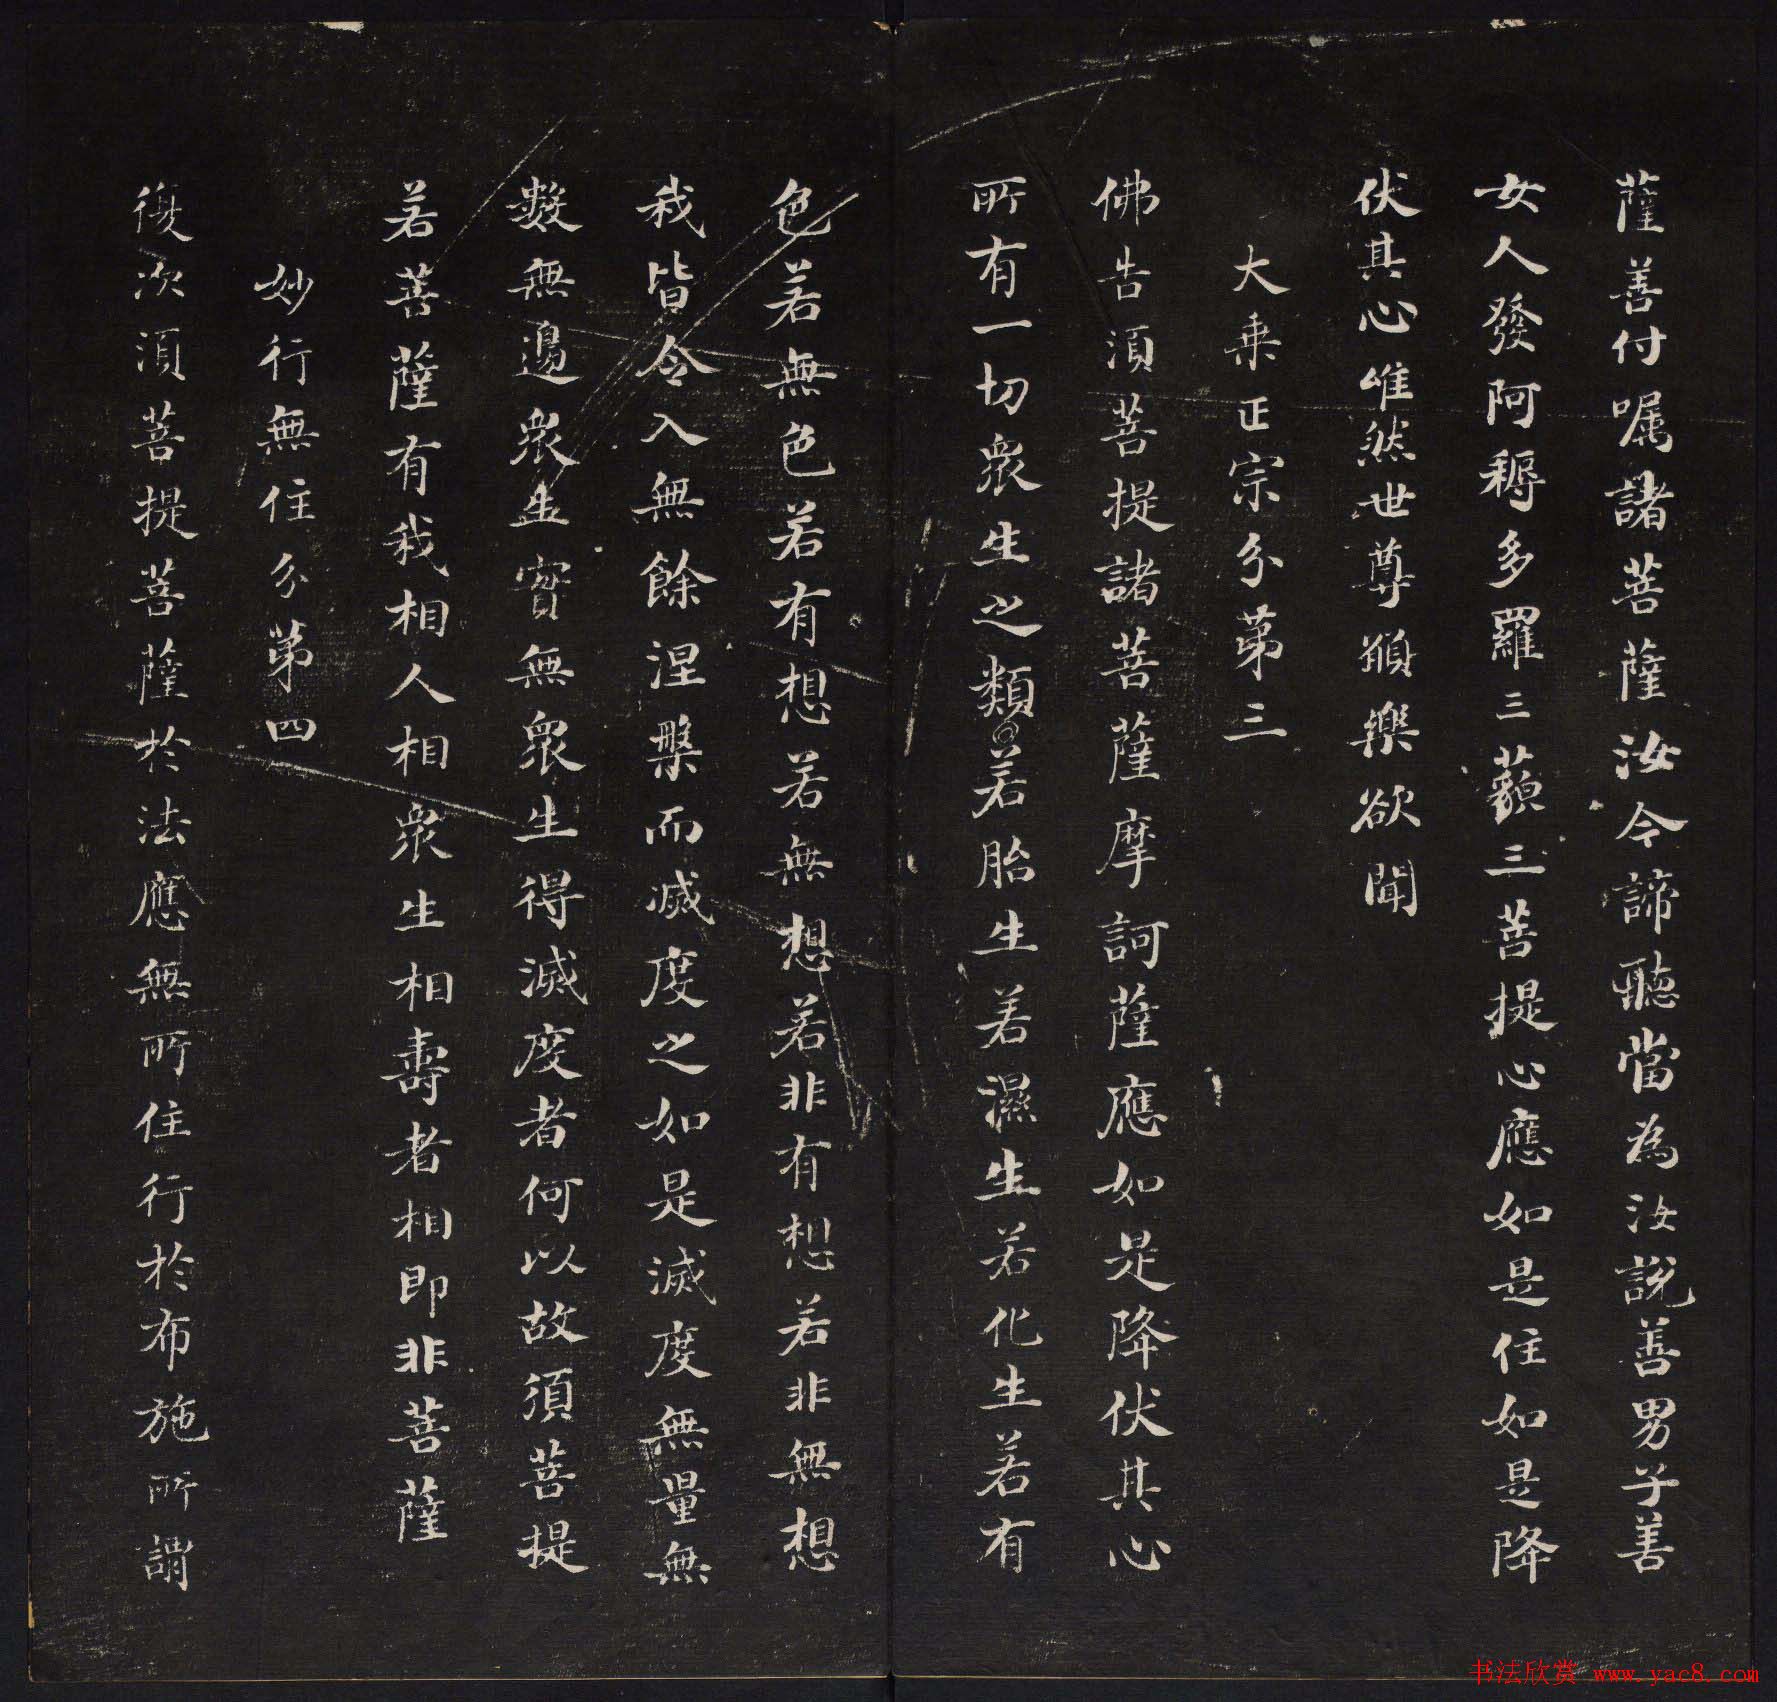 薩善付嘱諸菩薩汝今諦聽當為汝說善男子善
女人發阿耨多羅三藐三菩提心應如是住如是降
伏其心唯然世尊願樂欲聞
大乗正宗分第三
佛告須菩提諸菩薩摩訶薩應如是降伏其心
所有一切衆生之類若胎生若濕生若化生若有
色若無色若有想若無想若非有想若非無想
我皆令入無餘涅槃而滅度之如是滅度無量無
數無邊衆生實無衆生得滅度者何以故須菩提
若菩薩有我相人相衆生相壽者相即非菩薩
妙行無住分第四
復次須菩提菩薩於法應無所住行於布施所謂
书法欣赏 www.yac8.com